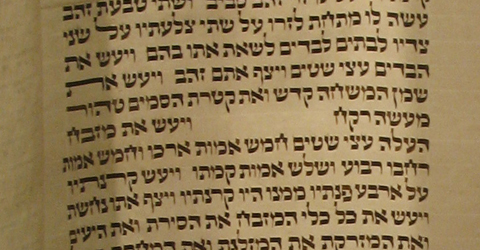 זהב סביב ושתי טבעת זהב
עשה לו מתחת לזרו על שתי צלעתיו על שני
צדיו לבתים לבדים לשאת אתו בהם ויעש את
הבדים עצי שטים ויצף אתם זהב ויעש את
שמן המשחה קדש ואת קטרת הסמים טהור
מעשה רקח ויעש את מזבח
העלה עצי שטים חמש אמות ארכו וחמש אמות
רחבו רבוע ושלש אמות קמתו ויעש קרנתיו
על ארבע פנתיו ממנו היו קרנתיו ויצף אתו נחשת
ויעש את כל כלי המזבח את הסירת ואת היעים
ואת המזרקת את המזלגת ואת המחתת כל